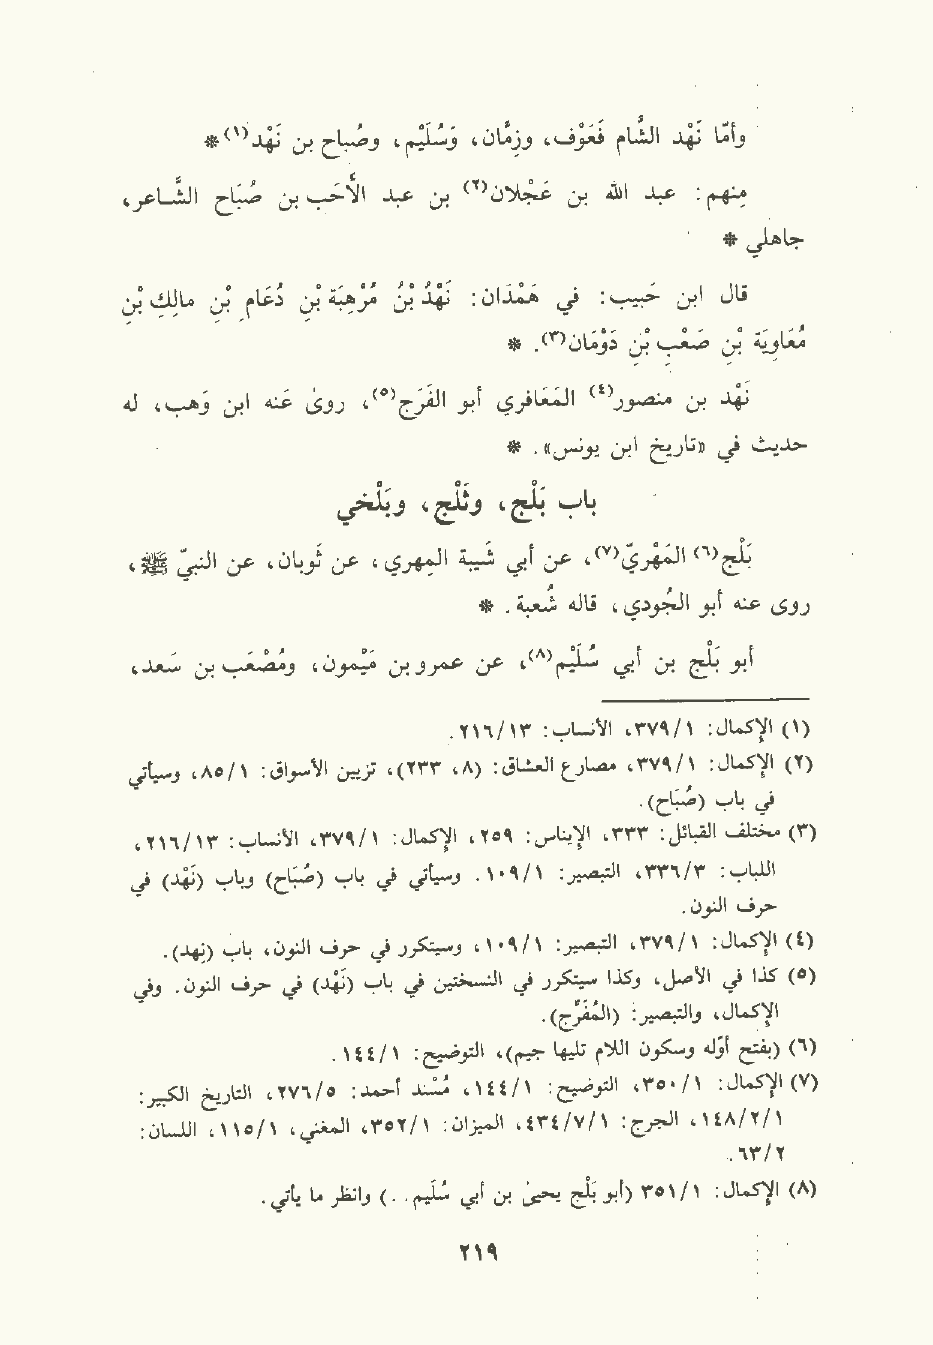 وأمّا نَهْد الشَّام فَعَوْف، وزِمَّان، وسُلَيْم، وصُبَاح بن نَهْد(١) *
مِنهم: عبد الله بن عَجْلان(٢) بن عبد الأَحَب بن صُبَاح الشَّاعر،
جاهلي *
قال ابن حَبيب: في هَمْدَان: نَهْدُ بْنُ مُرْهِبَة بْنِ دُعَام بْنِ مالِكِ بْنِ
مُعَاوِيَة بْنِ صَعْبِ بْنِ دَوْمَان(٣). *
نَهْد بن منصور(٤) المَعَافري أبو الفَرَج(٥)، روىٰ عَنه ابن وَهب، له
حديث في «تاريخ ابن يونس». *
باب بَلْج، وثَلْج، وبَلْخي
بَلْج(٦) المَهْريّ(٧)، عن أبي شَيبة المِهري، عن ثَوبان، عن النبيّ ﷺ،
روى عنه أبو الجُودي، قاله شُعبة. *
أبو بَلْج بن أبي سُلَيْم(٨)، عن عمرو بن مَيْمون، ومُصْعَب بن سَعد،
(١) الإكمال: ٣٧٩/١، الأنساب: ٢١٦/١٣.
(٢) الإكمال: ٣٧٩/١، مصارع العشاق: (٨، ٢٣٣)، تزيين الأسواق: ٨٥/١، وسيأتي
في باب (صُبَاح).
(٣) مختلف القبائل: ٣٣٣، الإيناس: ٢٥٩، الإكمال: ٣٧٩/١، الأنساب: ٢١٦/١٣،
اللباب: ٣٣٦/٣، التبصير: ١٠٩/١. وسيأتي في باب (صُبَاح) وباب (نَهْد) في
حرف النون.
(٤) الإكمال: ٣٧٩/١، التبصير: ١٠٩/١، وسيتكرر في حرف النون، باب (نهد).
(٥) كذا في الأصل، وكذا سيتكرر في النسختين في باب (نَهْد) في حرف النون. وفي
الإكمال، والتبصير: (المُفَرَّج).
(٦) (بفتح أوّله وسكون اللام تليها جيم)، التوضيح: ١٤٤/١.
(٧) الإكمال: ٣٥٠/١، التوضيح: ١٤٤/١، مُسْند أحمد: ٢٧٦/٥، التاريخ الكبير:
١٤٨/٢/١، الجرح: ٤٣٤/٧/١، الميزان: ٣٥٢/١، المغني، ١١٥/١، اللسان:
٦٣/٢.
(٨) الإكمال: ٣٥١/١ (أبو بَلْج يحيىٰ بن أبي سُلَيم. .) وانظر ما يأتي.
٢١٩